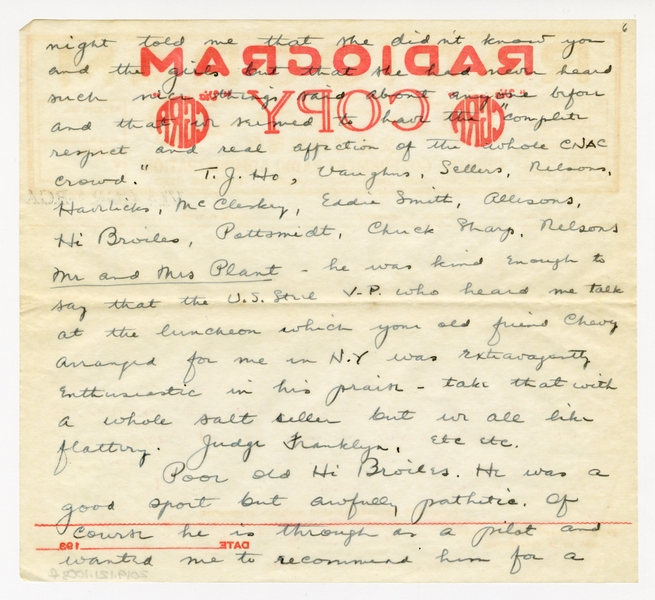 6
night told me that she didn't know you
and the girls but that she had never heard
such nice things said about anyone before
and that we seemed to have the "complete
respect and real affection of the whole CNAC
crowd." T.J. Ho, Vaughns, Sellers, Nelsons,
Havlicks, McCleskey, Eddie Smith, Allisons,
Hi Broiles, Pottsmidt, Chuck Sharp, Nelsons
Mr and Mrs Plant - he was kind enough to
say that the U.S. Steel V-P. who heard me talk
at the luncheon which your old friend Chevy
arranged for me in N.Y was extravagently
enthusiastic in his praise - take that with
a whole salt seller but we all like
flattery. Judge Franklyn, etc etc.
Poor old Hi Broiles. He was a
good sport but awfully pathetic. Of
course he is through as a pilot and
wanted me to recommend him for a
RADIOGRAM
COPY
DATE 193
2019.121.1003.7